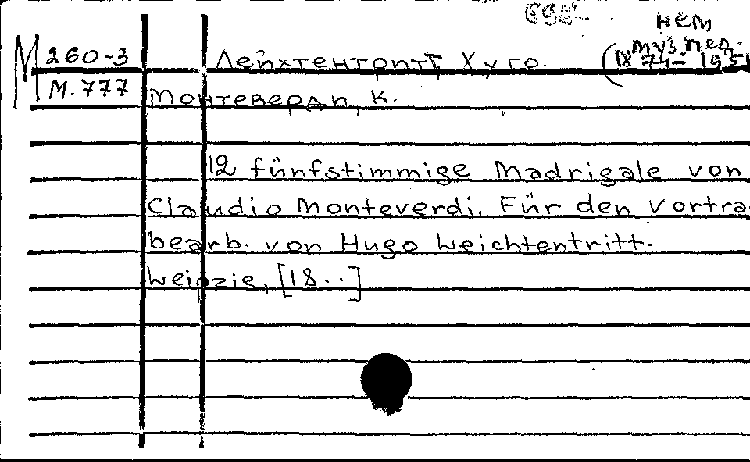 нем.
муз. пед.
М 260-3 Лейхтентритт Хуго (1874-1951
М.777 Монтеверди, К.
12 fünfstimmige Madrigale von
Claudio Monteverdi. Für den Vortra
bearb. von Hugo Leichtentritt.
Leipzig, [18..]